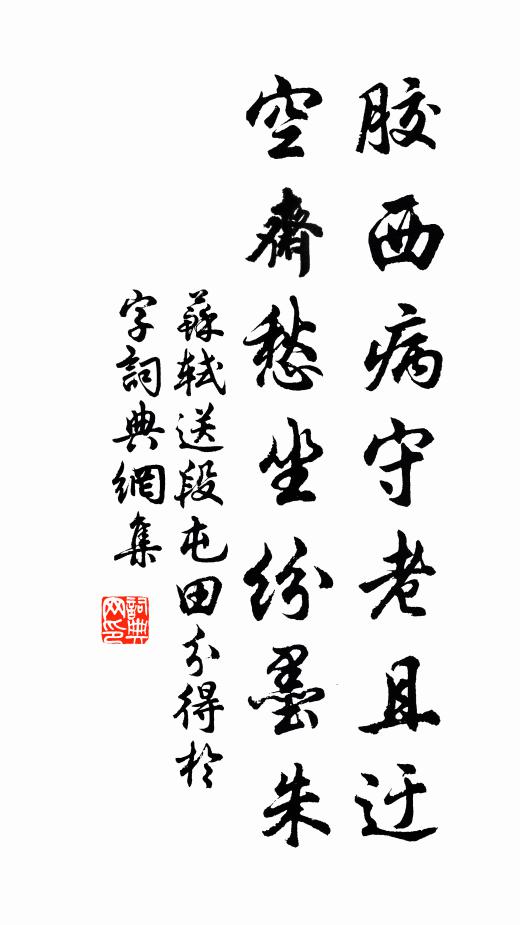 胶西病守老且迂
空齋愁坐紛墨朱
蘇軾送段屯田分得於
字詞典網集
詞典
网印